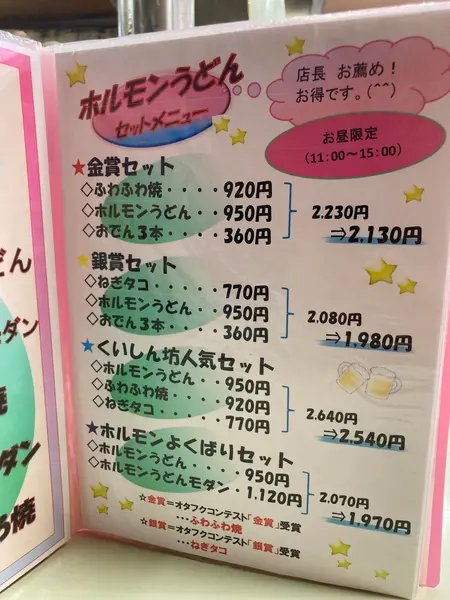 ホルモンうどん
セットメニュー
店長 お薦め！
お得です。(^^)
お昼限定
(11:00～15:00)
★金賞セット
◇ふわふわ焼・・・・920円
◇ホルモンうどん・・950円
◇おでん３本・・・・360円
2.230円
⇒2.130円
★銀賞セット
◇ねぎタコ・・・・770円
◇ホルモンうどん・・950円
◇おでん３本・・・・360円
2.080円
⇒1.980円
★くいしん坊人気セット
◇ホルモンうどん・・950円
◇ふわふわ焼・・・・920円
◇ねぎタコ・・・・・770円
2.640円
⇒2,540円
★ホルモンよくばりセット
◇ホルモンうどん・・・・950円
◇ホルモンうどんモダン・1.120円
2.070円
⇒1.970円
☆金賞＝オタフクコンテスト「金賞」受賞
…ふわふわ焼
☆銀賞＝オタフクコンテスト「銀賞」受賞
…ねぎタコ
どん
モダン
焼
ダン
ろ焼